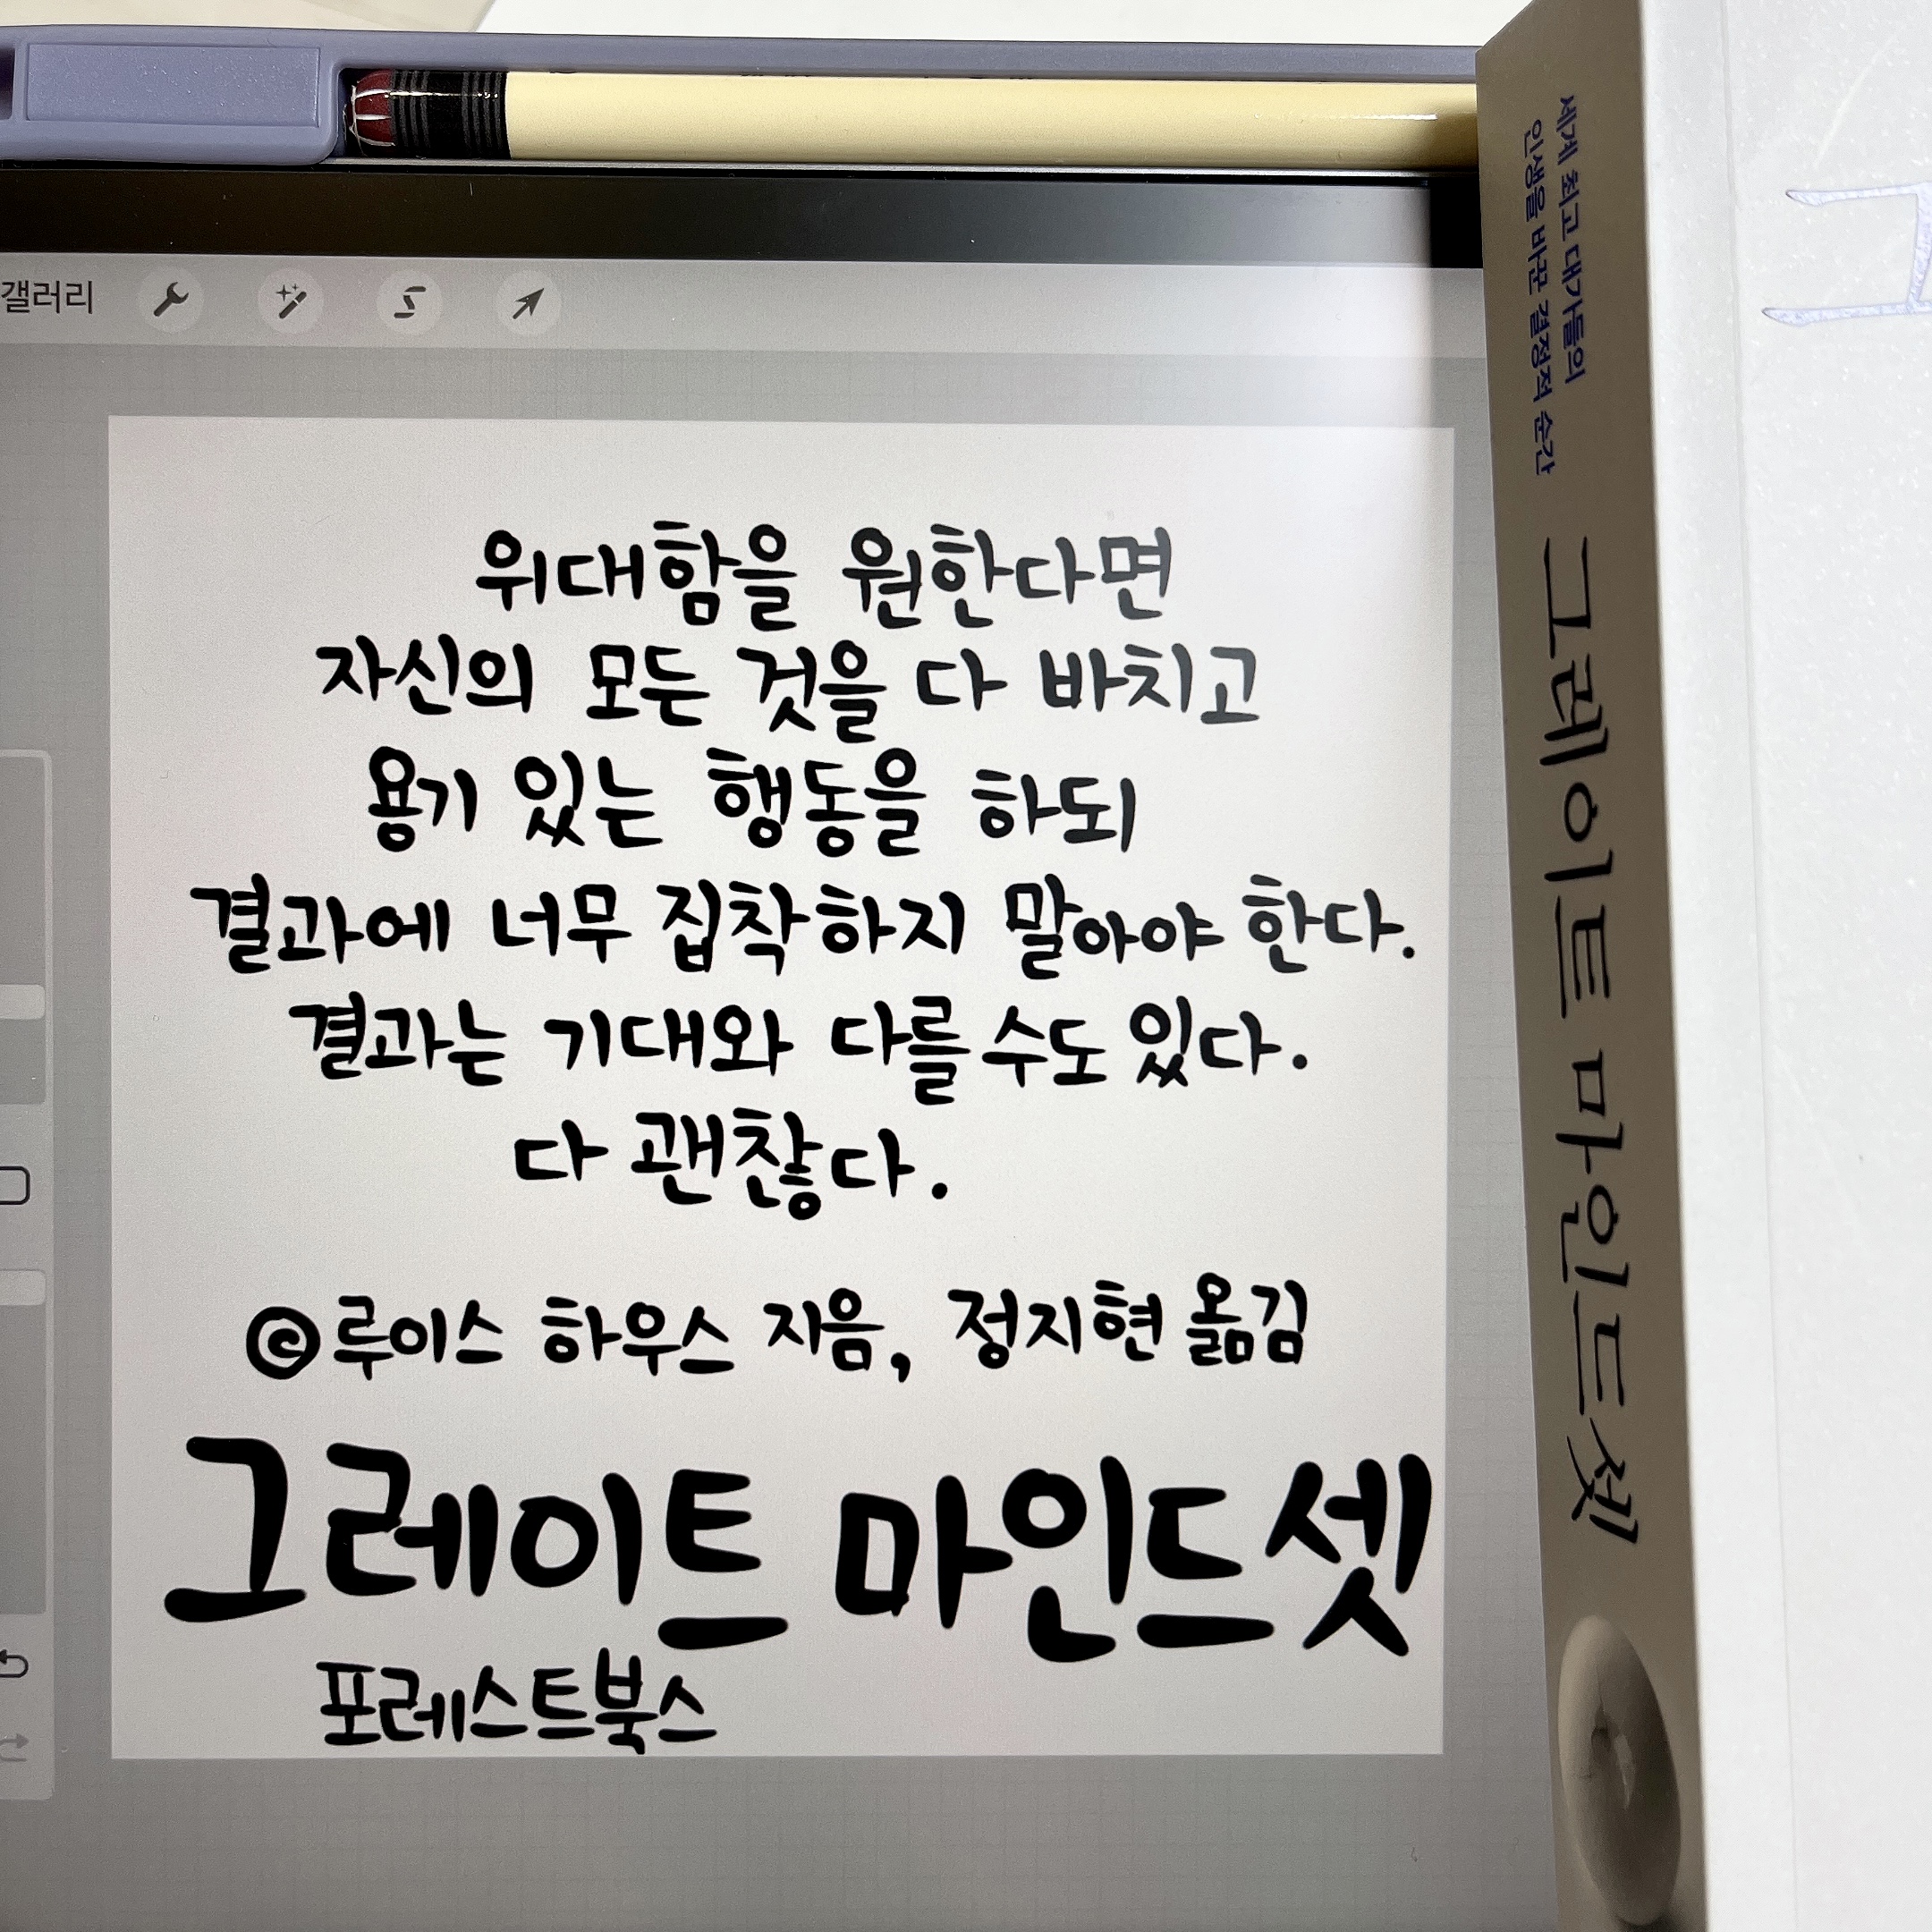 갤러리
위대함을 원한다면
자신의 모든 것을 다 바치고
용기 있는 행동을 하되
결과에 너무 집착하지 말아야 한다.
결과는 기대와 다를 수도 있다.
다 괜찮다.
©루이스 하우스 지음, 정지현 옮김
그레이트 마인드셋
포레스트북스
세계 최고 대가들의
인생을 바꾼 결정적 순간
그레이트 마인드셋